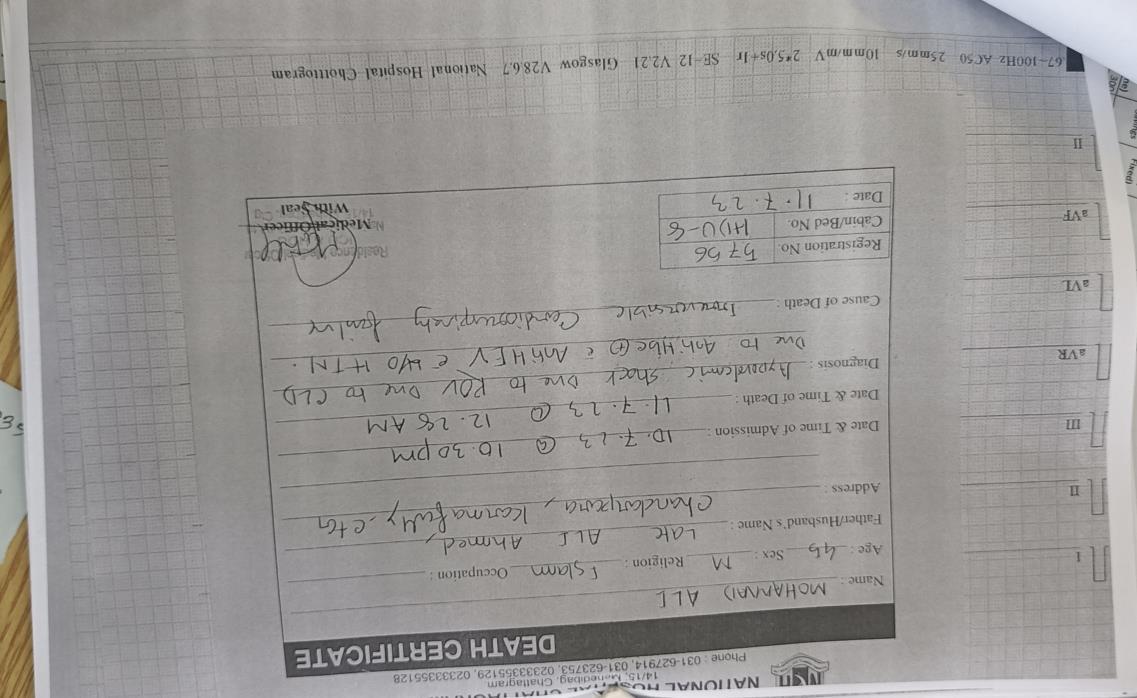 NATIONAL HOSPITAL
14/15, Mehedibag, Chattagram
Phone : 031-627914, 031-623753, 02333355129, 02333355128
DEATH CERTIFICATE
Name : MOHAMMAD ALI
Age : 45 Sex : M Religion : Islam Occupation :
Father/Husband's Name : Late ALI Ahmed,
Address : Chandanpura, Karnafully, Ctg
Date & Time of Admission : 10.7.23 @ 10.30 pm
Date & Time of Death : 11.7.23 @ 12.28 AM
Diagnosis : Hypovolemic shock Due to Due to CLD
Due to Anti Hbc(+) c Anti HEV c HTN.
Cause of Death : Irreversible Cardiorespiratory failure
Registration No. 5756
Cabin/Bed No. HDU-8
Date : 11.7.23
Medical Officer
With Seal
I
II
III
aVR
aVL
aVF
II
67~100Hz AC50 25mm/s 10mm/mV 2*5,0s+1r SE-12 V2.21 Glasgow V28.6.7 National Hospital Chotttogram